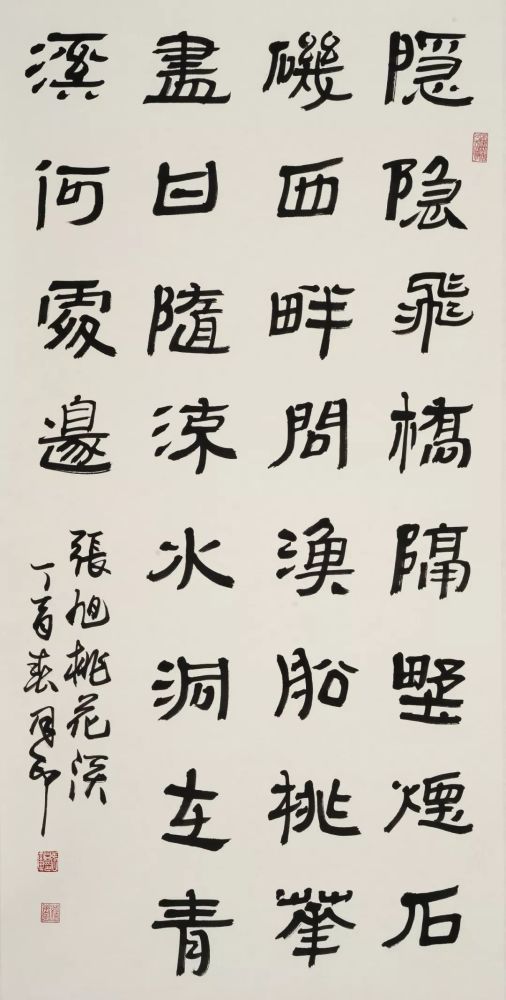 隱隐飛橋隔野煙石
磯西畔問漁船桃華
盡日隨流水洞在青
溪何處邊
張旭桃花溪
丁酉春